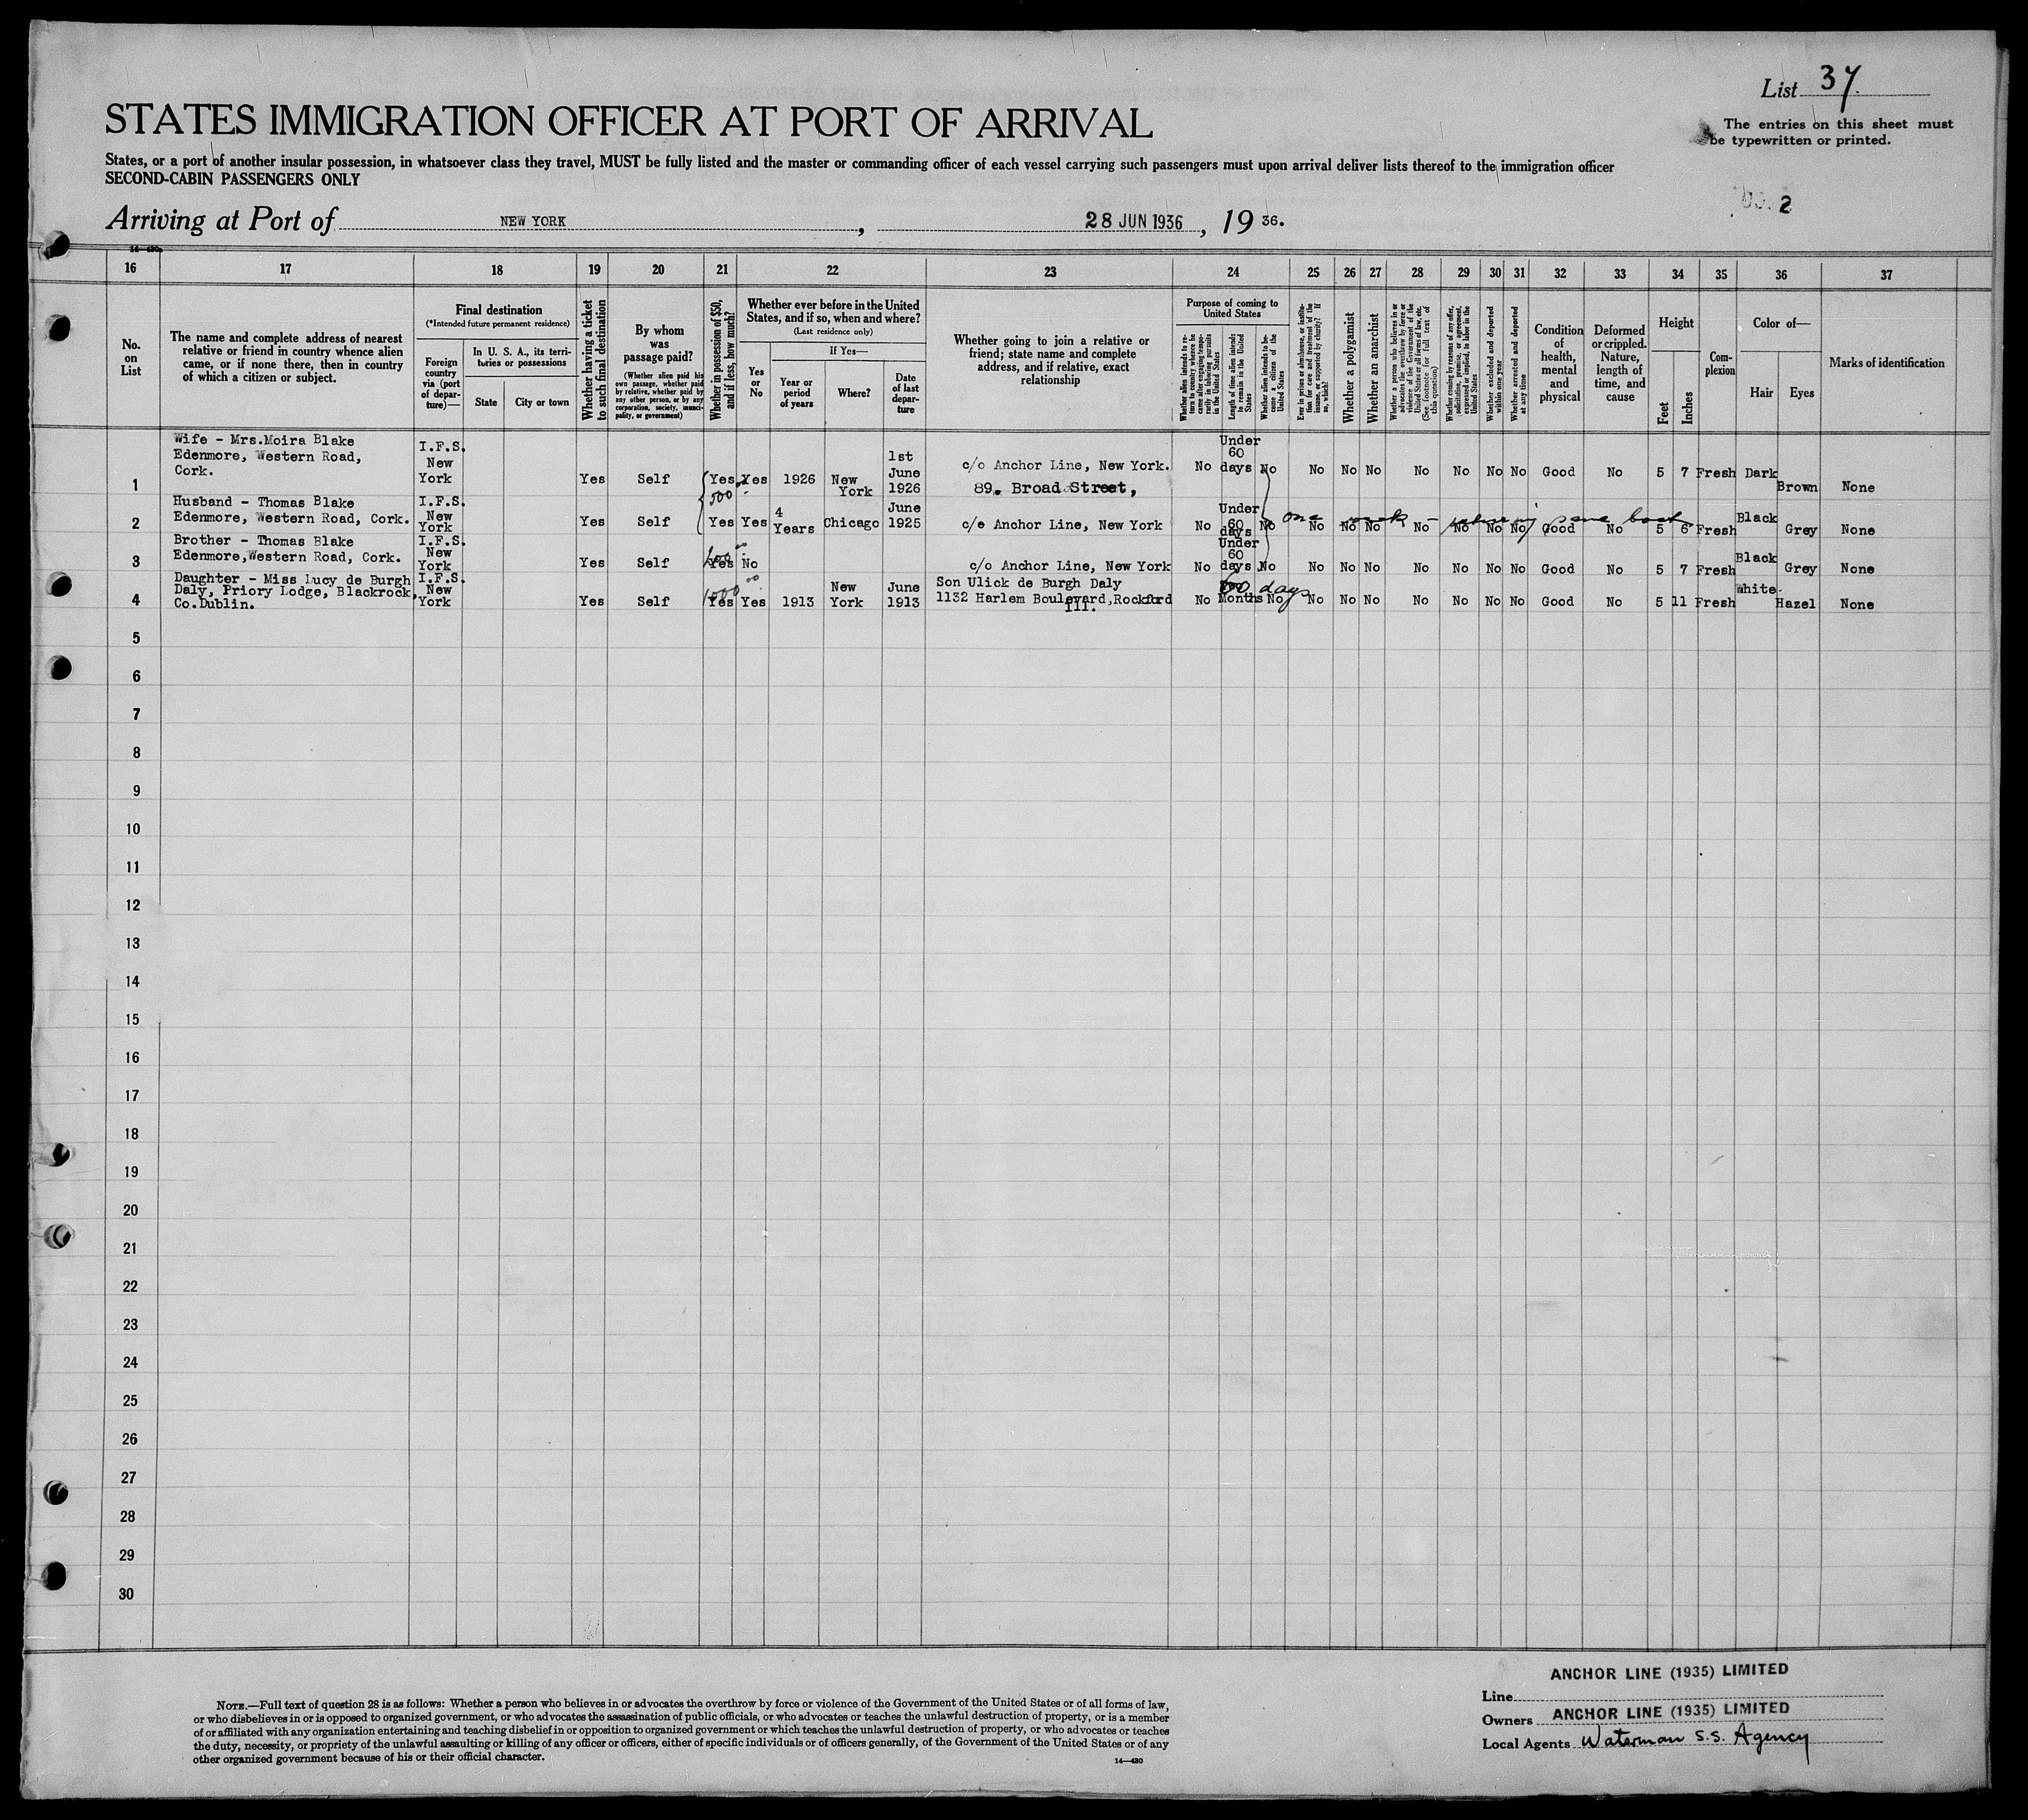 List 37.
STATES IMMIGRATION OFFICER AT PORT OF ARRIVAL
The entries on this sheet must
be typewritten or printed.
States, or a port of another insular possession, in whatsoever class they travel, MUST be fully listed and the master or commanding officer of each vessel carrying such passengers must upon arrival deliver lists thereof to the immigration officer
SECOND-CABIN PASSENGERS ONLY
2
Arriving at Port of NEW YORK, 28 JUN 1936, 19 36.
16 17 18 19 20 21 22 23 24 25 26 27 28 29 30 31 32 33 34 35 36 37
No. on List
The name and complete address of nearest
relative or friend in country whence alien
came, or if none there, then in country
of which a citizen or subject.
Final destination
(*Intended future permanent residence)
Foreign country via (port of departure)—
In U. S. A., its territories or possessions
State
City or town
Whether having a ticket to such final destination
By whom was passage paid?
(Whether alien paid his own passage, whether paid by relative, whether paid by any other person, or by any corporation, society, municipality, or government)
Whether in possession of $50, and if less, how much?
Whether ever before in the United States, and if so, when and where?
(Last residence only)
Yes or No
If Yes—
Year or period of years
Where?
Date of last departure
Whether going to join a relative or
friend; state name and complete
address, and if relative, exact
relationship
Purpose of coming to United States
Whether alien intends to return to country whence he came after engaging temporarily in laboring pursuits in the United States
Length of time alien intends to remain in the United States
Whether alien intends to become a citizen of the United States
Ever in prison or almshouse, or institution for care and treatment of the insane, or supported by charity? If so, which?
Whether a polygamist
Whether an anarchist
Whether a person who believes in or advocates the overthrow by force or violence of the Government of the United States or all forms of law, etc. (See footnote for full text of this question)
Whether coming by reasons of any offer, solicitation, promise, or agreement, expressed or implied, to labor in the United States
Whether excluded and deported within one year
Whether arrested and deported at any time
Condition of health, mental and physical
Deformed or crippled. Nature, length of time, and cause
Height
Feet
Inches
Complexion
Color of—
Hair
Eyes
Marks of identification
1 Wife - Mrs.Moira Blake
Edenmore, Western Road,
Cork.
I.F.S. New York Yes Self Yes Yes 1926 New York 1st June 1926 c/o Anchor Line, New York.
89. Broad Street,
No Under 60 days No No No No No No No No Good No 5 7 Fresh Dark Brown None
500
2 Husband - Thomas Blake
Edenmore, Western Road, Cork.
I.F.S. New York Yes Self Yes Yes 4 Years Chicago June 1925 c/e Anchor Line, New York No Under 60 days No No No No No No No No Good No 5 6 Fresh Black Grey None
one week - returning same boat
3 Brother - Thomas Blake
Edenmore,Western Road, Cork.
I.F.S. New York Yes Self Yes No c/o Anchor Line, New York No Under 60 days No No No No No No No No Good No 5 7 Fresh Black Grey None
4 Daughter - Miss Lucy de Burgh
Daly, Priory Lodge, Blackrock,
Co.Dublin.
I.F.S. New York Yes Self 1000 00 Yes Yes 1913 New York June 1913 Son Ulick de Burgh Daly
1132 Harlem Boulevard,Rockford
Ill.
No 60 days Months No No No No No No No No Good No 5 11 Fresh White. Hazel None
5
6
7
8
9
10
11
12
13
14
15
16
17
18
19
20
21
22
23
24
25
26
27
28
29
30
NOTE.—Full text of question 28 is as follows: Whether a person who believes in or advocates the overthrow by force or violence of the Government of the United States or of all forms of law,
or who disbelieves in or is opposed to organized government, or who advocates the assassination of public officials, or who advocates or teaches the unlawful destruction of property, or is a member
of or affiliated with any organization entertaining and teaching disbelief in or opposition to organized government or which teaches the unlawful destruction of property, or who advocates or teaches
the duty, necessity, or propriety of the unlawful assaulting or killing of any officer or officers, either of specific individuals or of officers generally, of the Government of the United States or of any
other organized government because of his or their official character.
14—430
ANCHOR LINE (1935) LIMITED
Line
Owners ANCHOR LINE (1935) LIMITED
Local Agents Waterman S.S. Agency